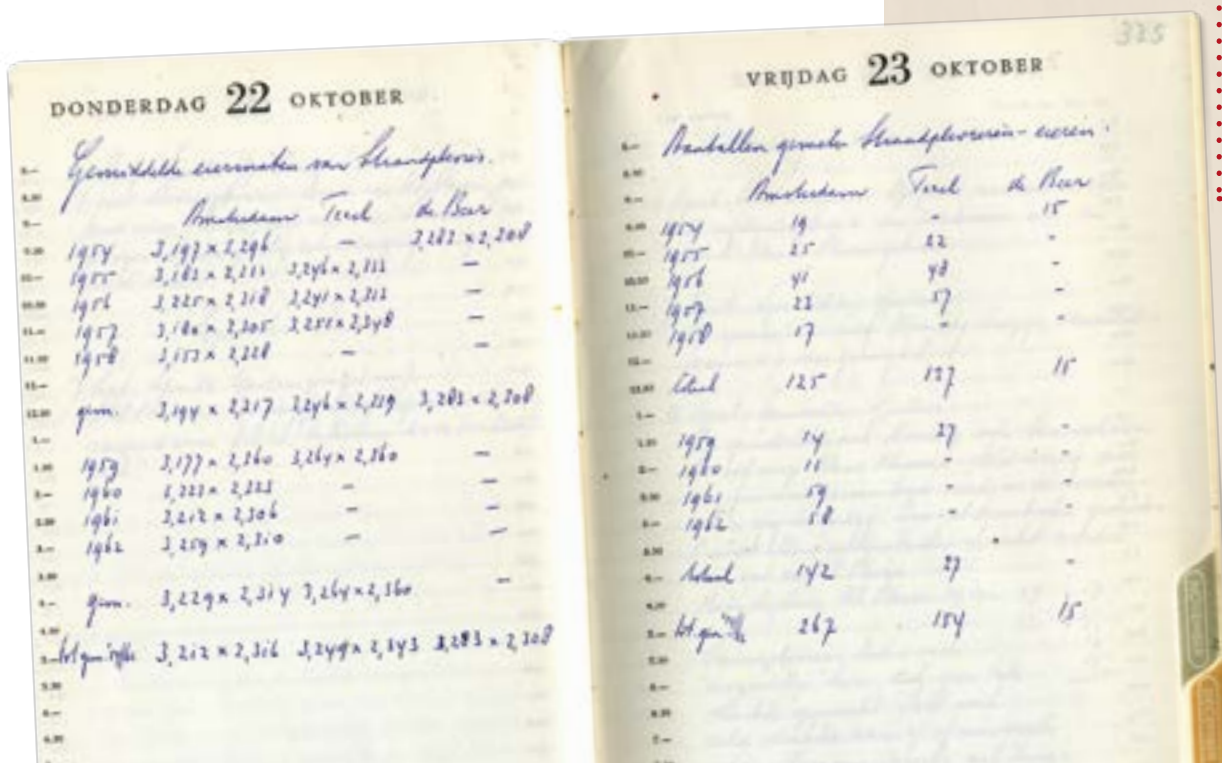 DONDERDAG 22 OKTOBER
Gemiddelde eiermaten van Strandplevier.
Amsterdam Texel de Beer
1954 3,197 x 2,296 — 3,283 x 2,308
1955 —
1956 3,225 x 2,318 —
1957 3,180 x 2,305 3,251 x 2,348 —
1958 3,153 x 2,328 — —
gem. 3,194 x 2,317 3,283 x 2,308
1959 3,177 x 2,360 3,264 x 2,360 —
1960 — —
1961 3,212 x 2,306 — —
1962 3,259 x 2,310 — —
gem. 3,229 x 2,314 3,264 x 2,360 —
tot gem 3,212 x 2,316 3,249 x 2,343 3,283 x 2,308
325
VRIJDAG 23 OKTOBER
Aantallen gemeten Strandplevieren-eieren.
Amsterdam Texel de Beer
1954 19 - 15
1955 25 22 -
1956 41 48 -
1957 23 57 -
1958 17 - -
totaal 125 127 15
1959 14 27 -
1960 11 - -
1961 59 - -
1962 58 - -
totaal 142 27 -
tot gem 267 154 15